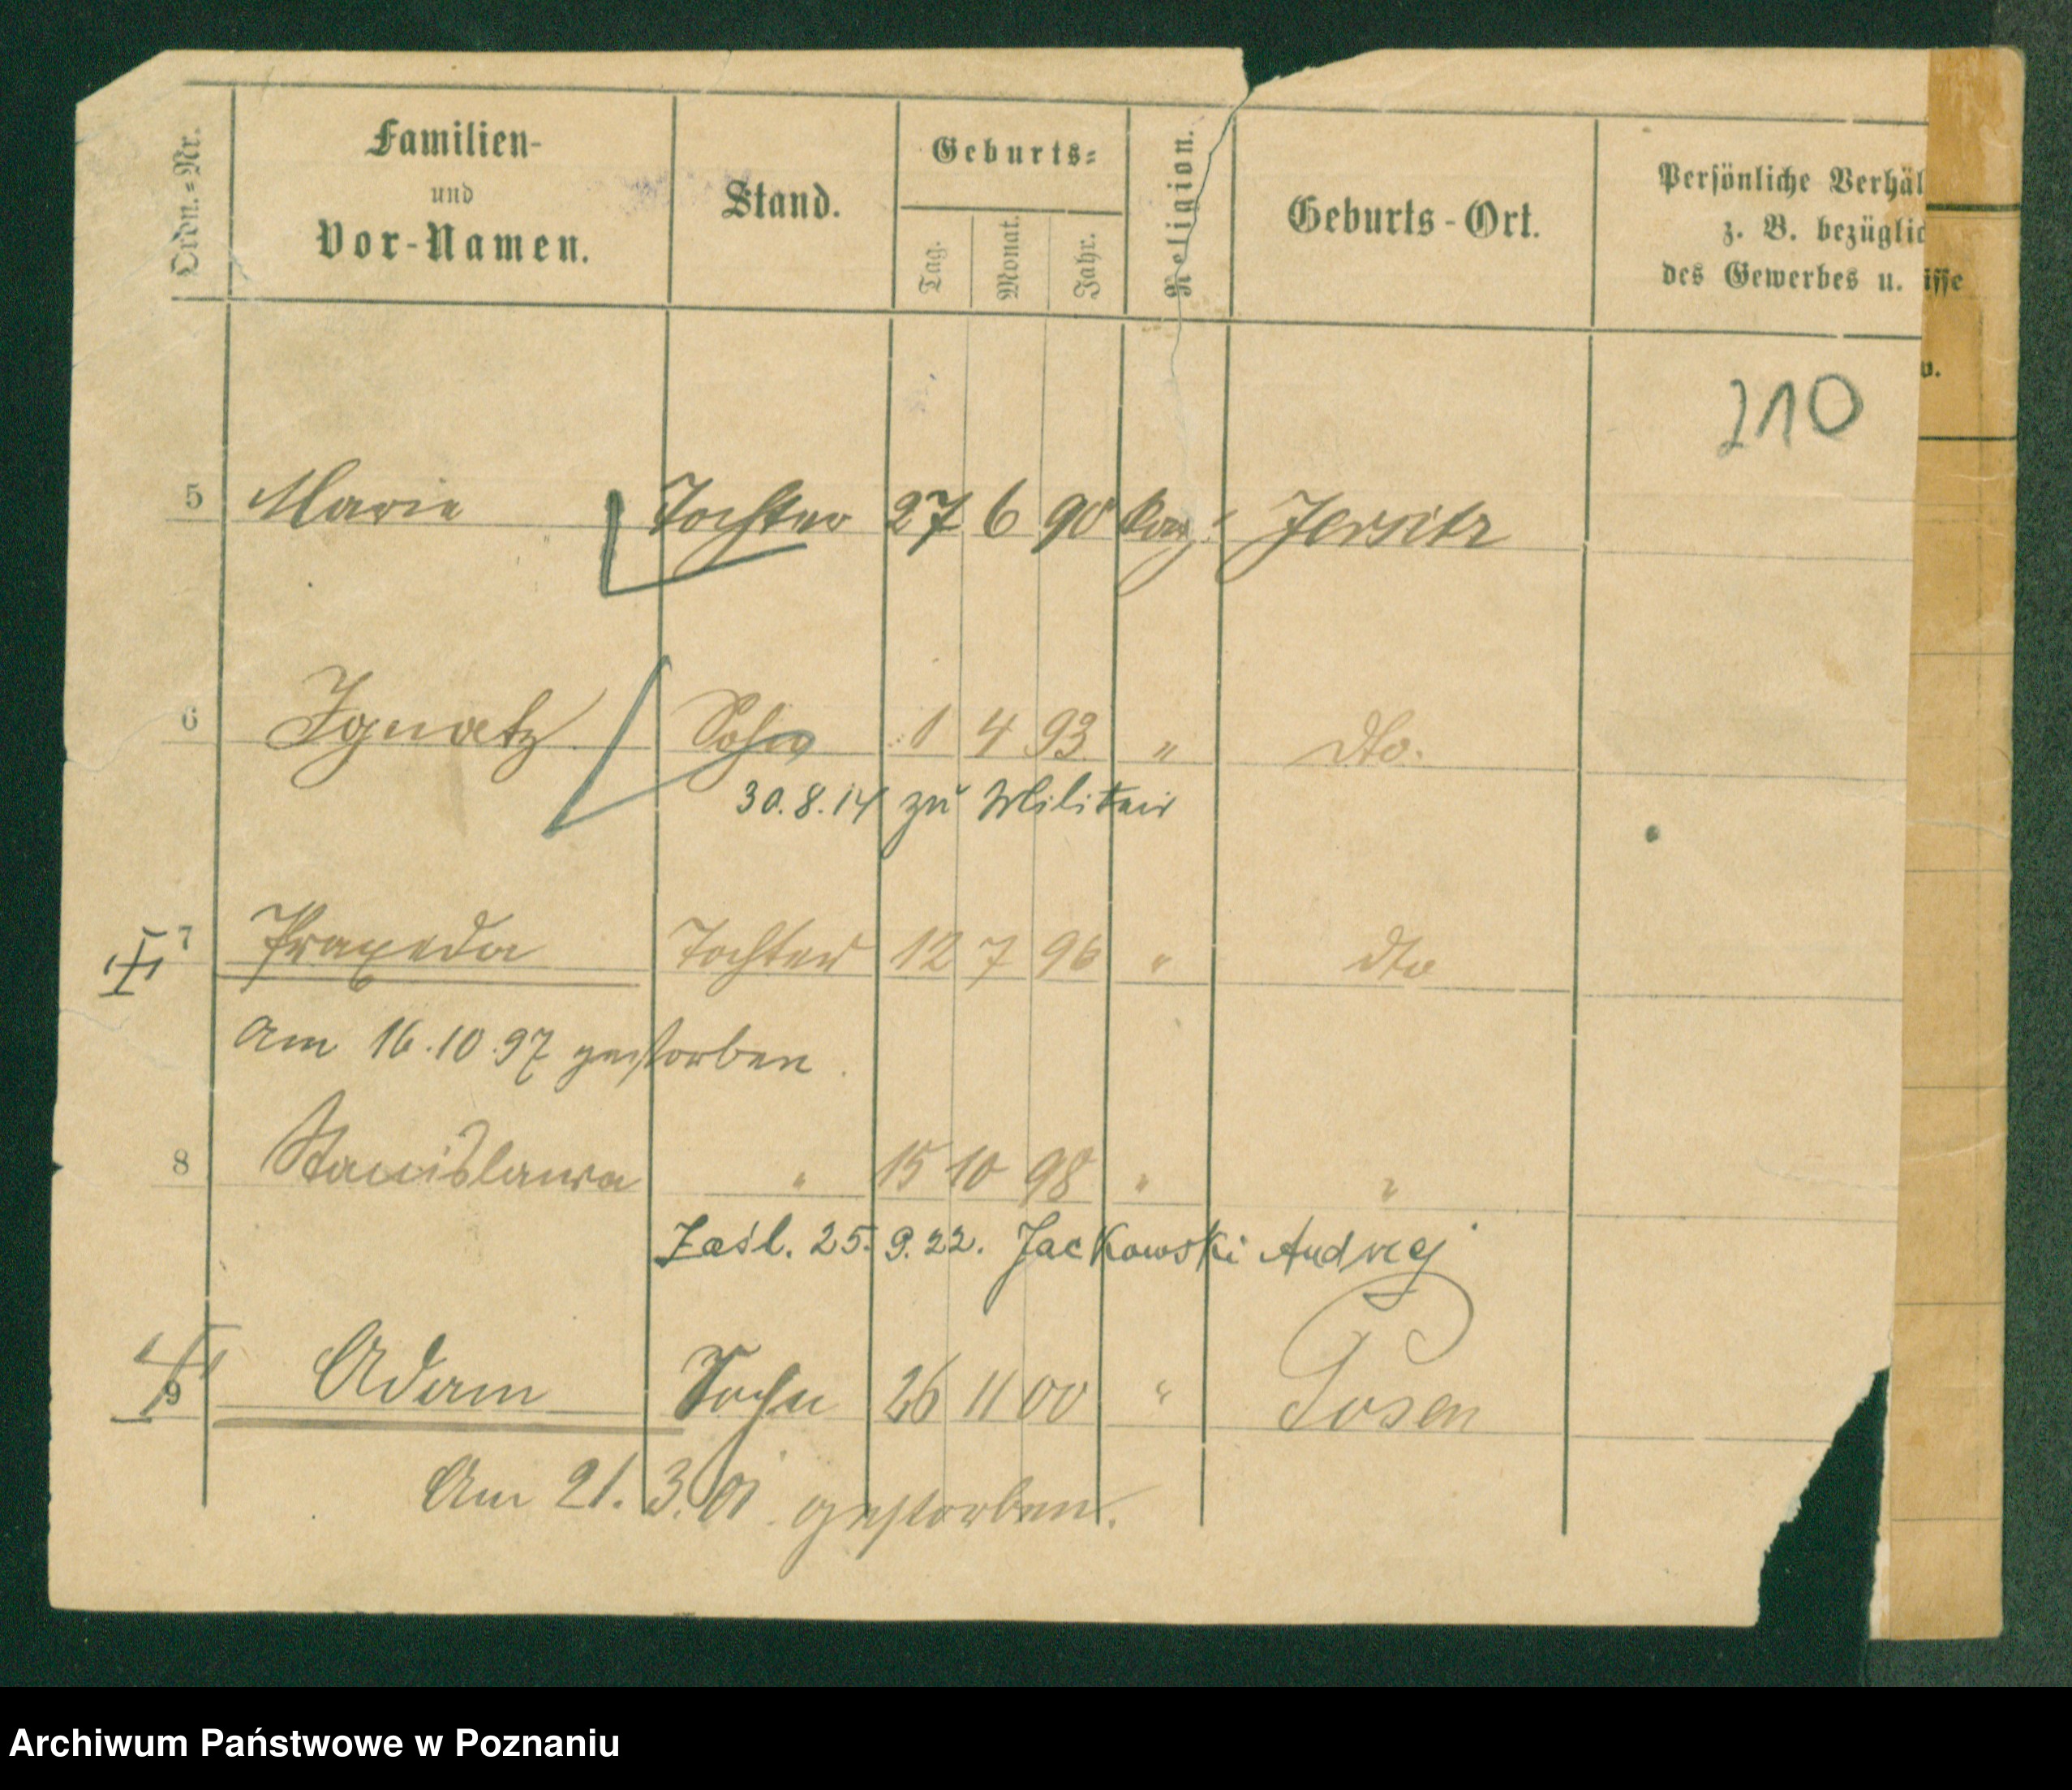 Ordn.=Nr. Familien- und Vor-Namen. Stand. Geburts= Tag. Monat. Jahr. Religion. Geburts-Ort. Persönliche Verhäl
z. B. bezüglic
des Gewerbes u. isse
v.
210
5 Marie Tochter 27 6 90 Jersitz
6 Ignatz Sohn 1 4 93 " dto.
30.8.14 zu Militair
7 Praxeda Tochter 12 7 96 " dto
Am 16.10.97 gestorben.
8 Stanislawa " 15 10 98 " "
Zaśl. 25.9.22. Jackowski Andrzej
9 Adam Sohn 26 11 00 " Posen
Am 21.3.01 gestorben.
Archiwum Państwowe w Poznaniu